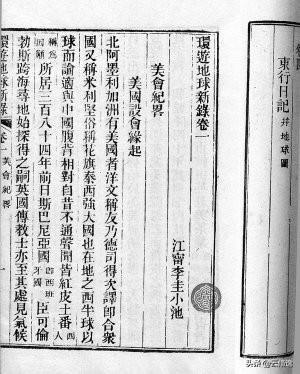 東行日記 并地球圖
環遊地球新錄卷一
江甯李圭小池
美會紀畧
美國設會緣起
北阿墨利加洲有美國者洋文稱友乃德司得次譯即合衆
國又稱米利堅俗稱花旗泰西強大國也在地之西半球以
球而論適與中國腹背相對自昔不通聲聞皆紅皮土番西人
稱為所居三百八十四年前日斯巴尼亞國即西班牙國臣可倫
勃斯跨海尋地始探得之嗣英國傳教士亦至其處見氣候
環遊地球新錄 卷一 美會紀畧
头条